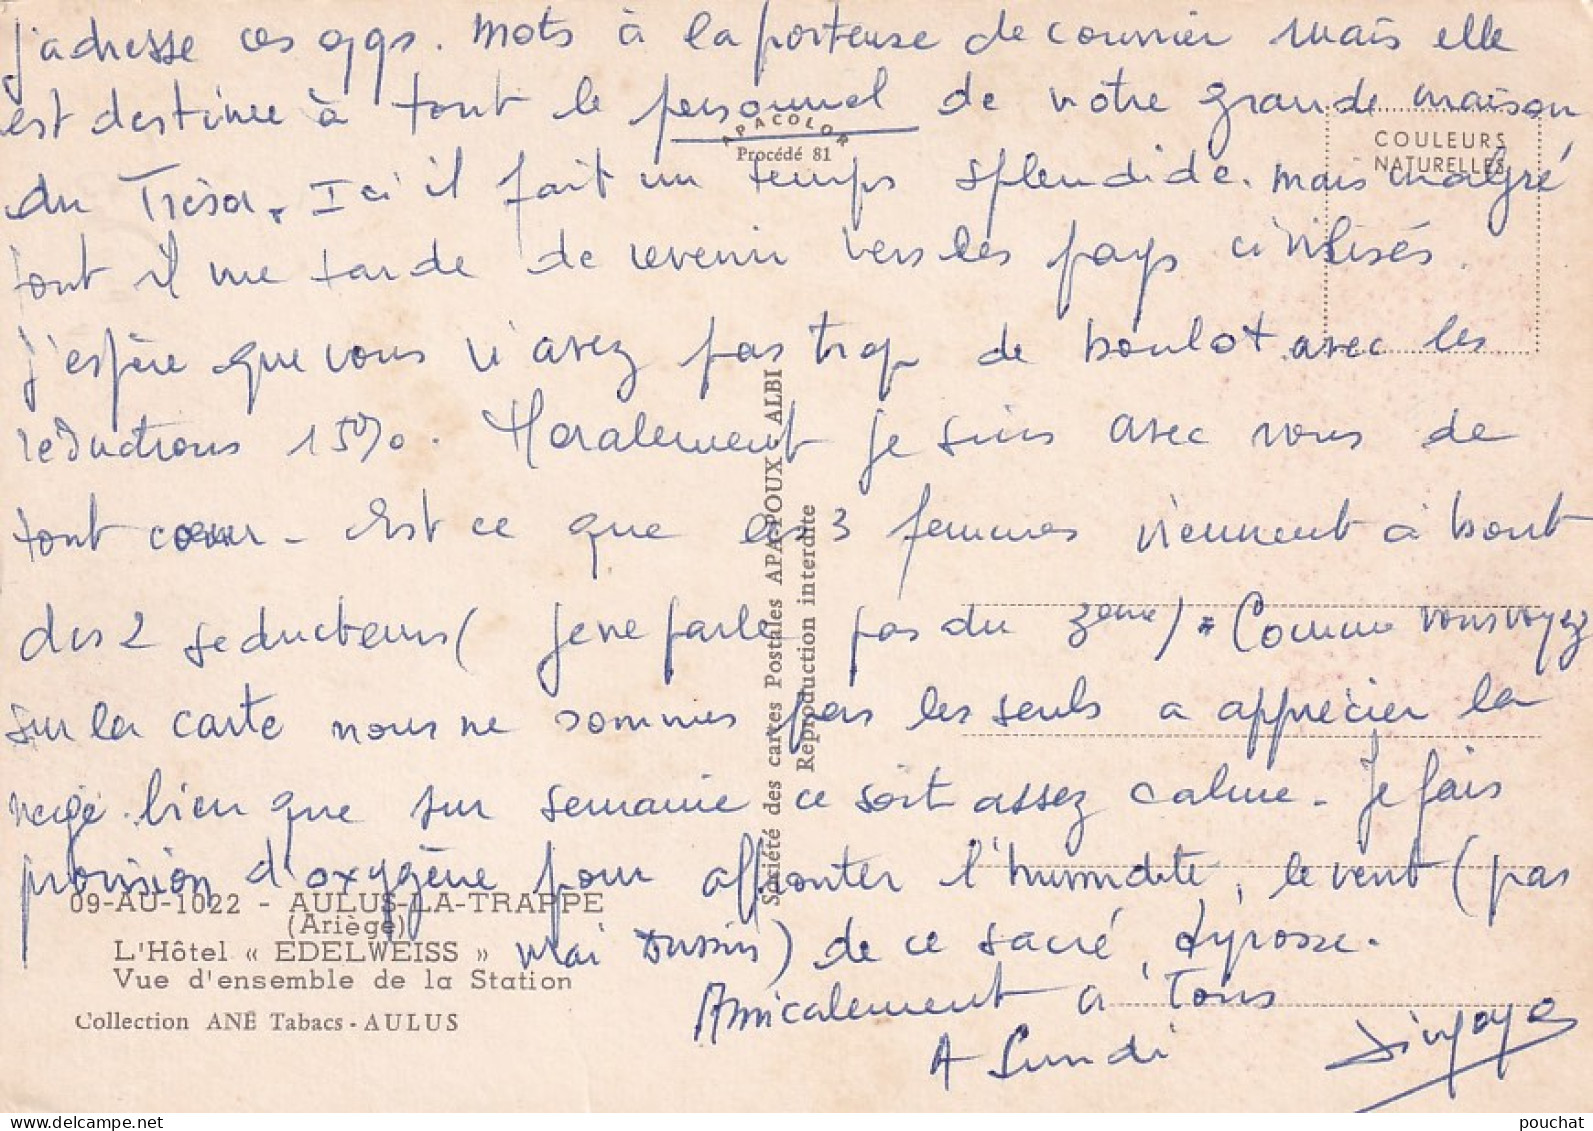 j'adresse ces qqs. mots à la porteuse de courrier mais elle
est destinée à tout le personnel de notre grande maison
APACOLOR
Procédé 81
COULEURS
NATURELLES
du Trésor. Ici il fait un temps splendide. mais malgré
tout il me tarde de revenir vers les pays civilisés.
j'espère que vous n'avez pas trop de boulot avec les
réductions 15%. Moralement je suis avec vous de
tout coeur - Est ce que les 3 femmes viennent à bout
des 2 séducteurs ( je ne parle pas du 3eme) Comme vous voyez
sur la carte nous ne sommes pas les seuls a apprécier la
neige bien que sur semaine ce soit assez calme - Je fais
provision d'oxygène pour affronter l'humidité, le vent (pas
vrai ) de ce sacré
Amicalement à Tous
A Lundi
Société des cartes Postales APA-POUX - ALBI
Reproduction interdite
09-AU-1022 - AULUS-LA-TRAPPE
(Ariège)
L'Hôtel « EDELWEISS »
Vue d'ensemble de la Station
Collection ANÉ Tabacs - AULUS
pouchat